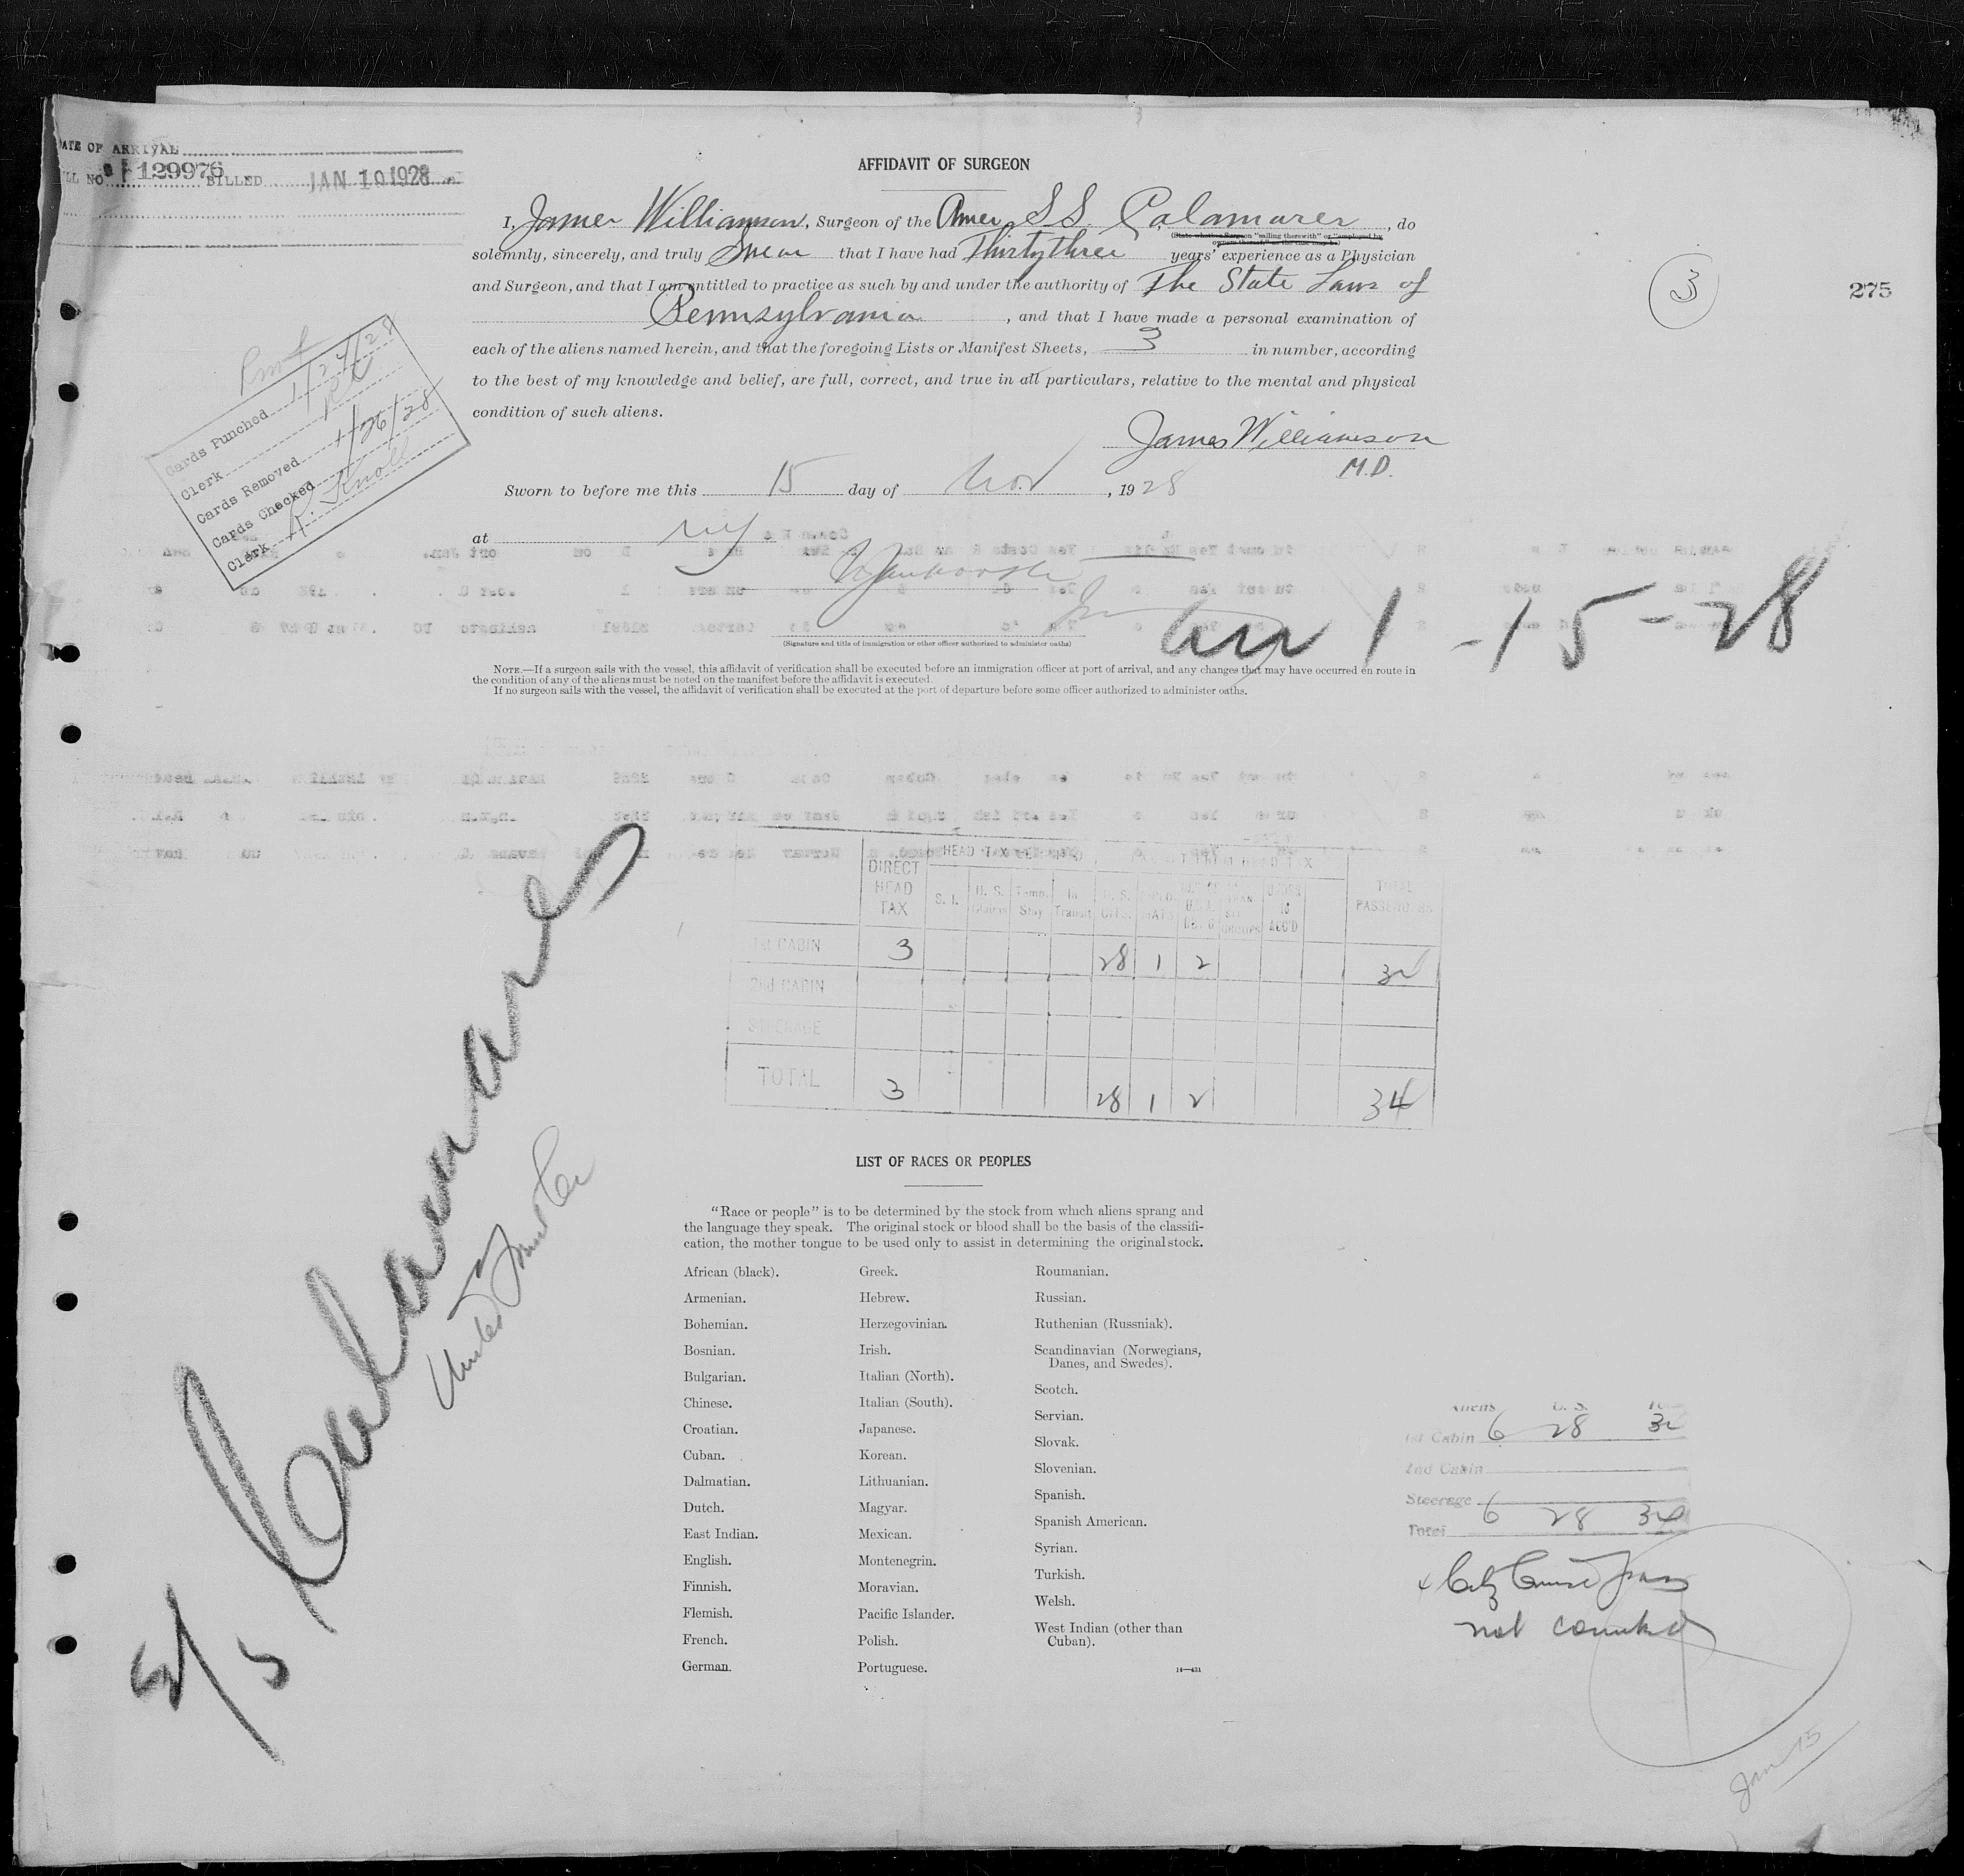 DATE OF ARRIVAL
BILL NO 129976 BILLED JAN 10 1928
AFFIDAVIT OF SURGEON
I, James Williamson, Surgeon of the Amer S.S. Calamares, do
(State whether Surgeon "sailing therewith" or "employed by
owners thereof," as the case may be)
solemnly, sincerely, and truly Swear that I have had Thirty three years' experience as a Physician
and Surgeon, and that I am entitled to practice as such by and under the authority of The State Laws of
Pennsylvania, and that I have made a personal examination of
each of the aliens named herein, and that the foregoing Lists or Manifest Sheets, 3 in number, according
to the best of my knowledge and belief, are full, correct, and true in all particulars, relative to the mental and physical
condition of such aliens.
James Williamson
M.D.
3
275
Cards Punched 1/24/28
Clerk
Cards Removed 1/26/28
Cards Checked
Clerk R. Knoll
Sworn to before me this 15 day of Nov, 1928
at NY
(Signature and title of immigration or other officer authorized to administer oaths)
1-15-28
NOTE.—If a surgeon sails with the vessel, this affidavit of verification shall be executed before an immigration officer at port of arrival, and any changes that may have occurred en route in
the condition of any of the aliens must be noted on the manifest before the affidavit is executed.
If no surgeon sails with the vessel, the affidavit of verification shall be executed at the port of departure before some officer authorized to administer oaths.
DIRECT HEAD TAX
HEAD TAX
HEAD TAX
S. I. U. S. Temp. Stay In Transit U. S. CITS. TOTAL PASSENGERS
1st CABIN 3 28 1 2 34
2nd CABIN
STEERAGE
TOTAL 3 28 1 2 34
S/S Calamares
United Fruit Co
LIST OF RACES OR PEOPLES
"Race or people" is to be determined by the stock from which aliens sprang and
the language they speak. The original stock or blood shall be the basis of the classifi-
cation, the mother tongue to be used only to assist in determining the original stock.
African (black).
Armenian.
Bohemian.
Bosnian.
Bulgarian.
Chinese.
Croatian.
Cuban.
Dalmatian.
Dutch.
East Indian.
English.
Finnish.
Flemish.
French.
German.
Greek.
Hebrew.
Herzegovinian.
Irish.
Italian (North).
Italian (South).
Japanese.
Korean.
Lithuanian.
Magyar.
Mexican.
Montenegrin.
Moravian.
Pacific Islander.
Polish.
Portuguese.
Roumanian.
Russian.
Ruthenian (Russniak).
Scandinavian (Norwegians,
Danes, and Swedes).
Scotch.
Servian.
Slovak.
Slovenian.
Spanish.
Spanish American.
Syrian.
Turkish.
Welsh.
West Indian (other than
Cuban).
Aliens U. S.
1st Cabin 6 28 34
2nd Cabin
Steerage
Total 6 28 34
not counted
Jan 15